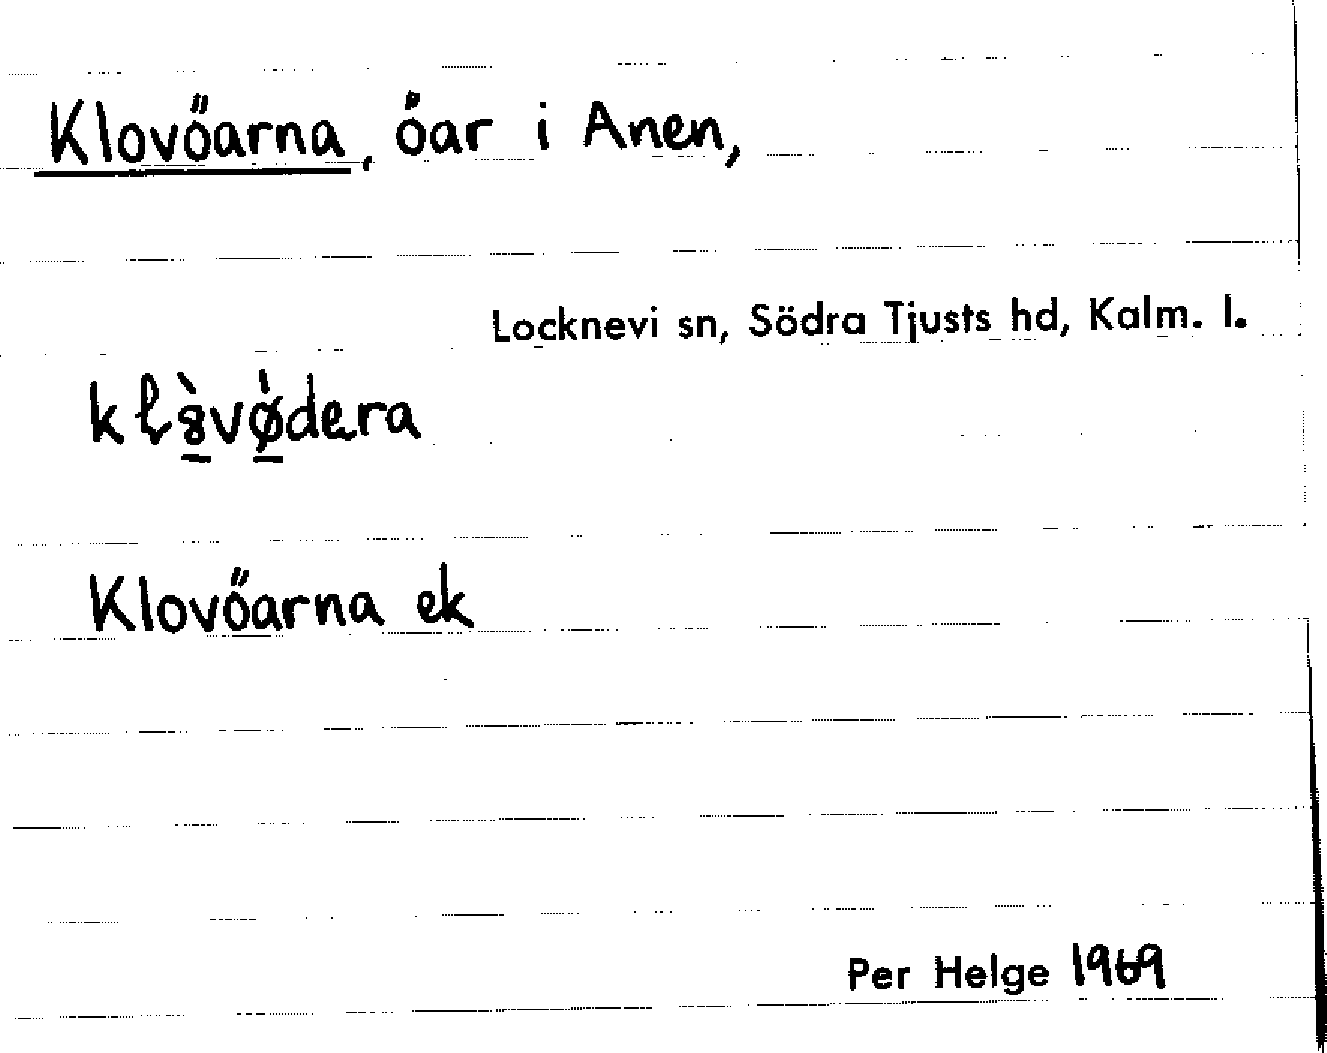 Klovöarna, öar i Anen,
Locknevi sn, Södra Tjusts hd, Kalm. l.
Klovöarna ek
Per Helge 1969